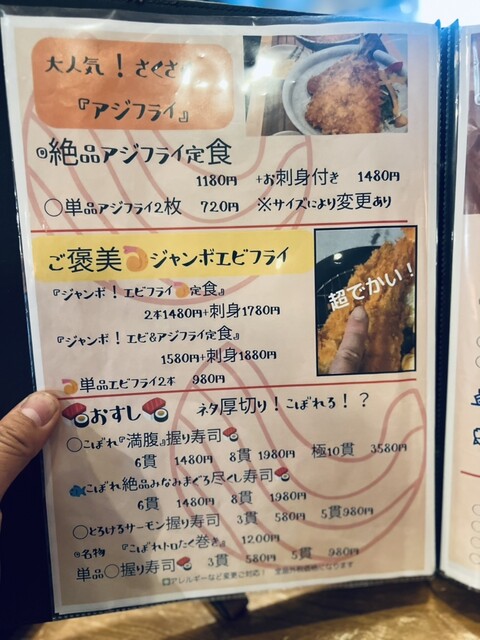 大人気！さくさく
『アジフライ』
◎絶品アジフライ定食
1180円 +お刺身付き 1480円
○単品アジフライ2枚 720円 ※サイズにより変更あり
ご褒美🍤ジャンボエビフライ
『ジャンボ！エビフライ🍤定食』
2本1480円+刺身1780円
『ジャンボ！エビ&アジフライ定食』
1580円+刺身1880円
🍤単品エビフライ2本 980円
超でかい！
🍣おすし🍣 ネタ厚切り！こぼれる！？
○こぼれ『満腹』握り寿司🍣
6貫 1480円 8貫 1980円 極10貫 3580円
🐟こぼれ絶品みなみまぐろ尽くし寿司🍣
6貫 1480円 8貫 1980円
○とろけるサーモン握り寿司 3貫 580円 5貫980円
◎名物 『こぼれトロたく巻き』 1200円
単品○握り寿司🍣 3貫 580円 5貫 980円
□アレルギーなど変更ご対応！